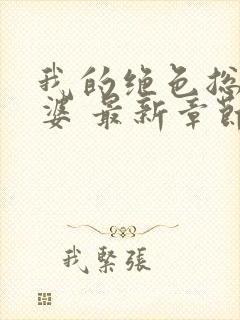 我的绝色总
婆 最新章节
我緊張